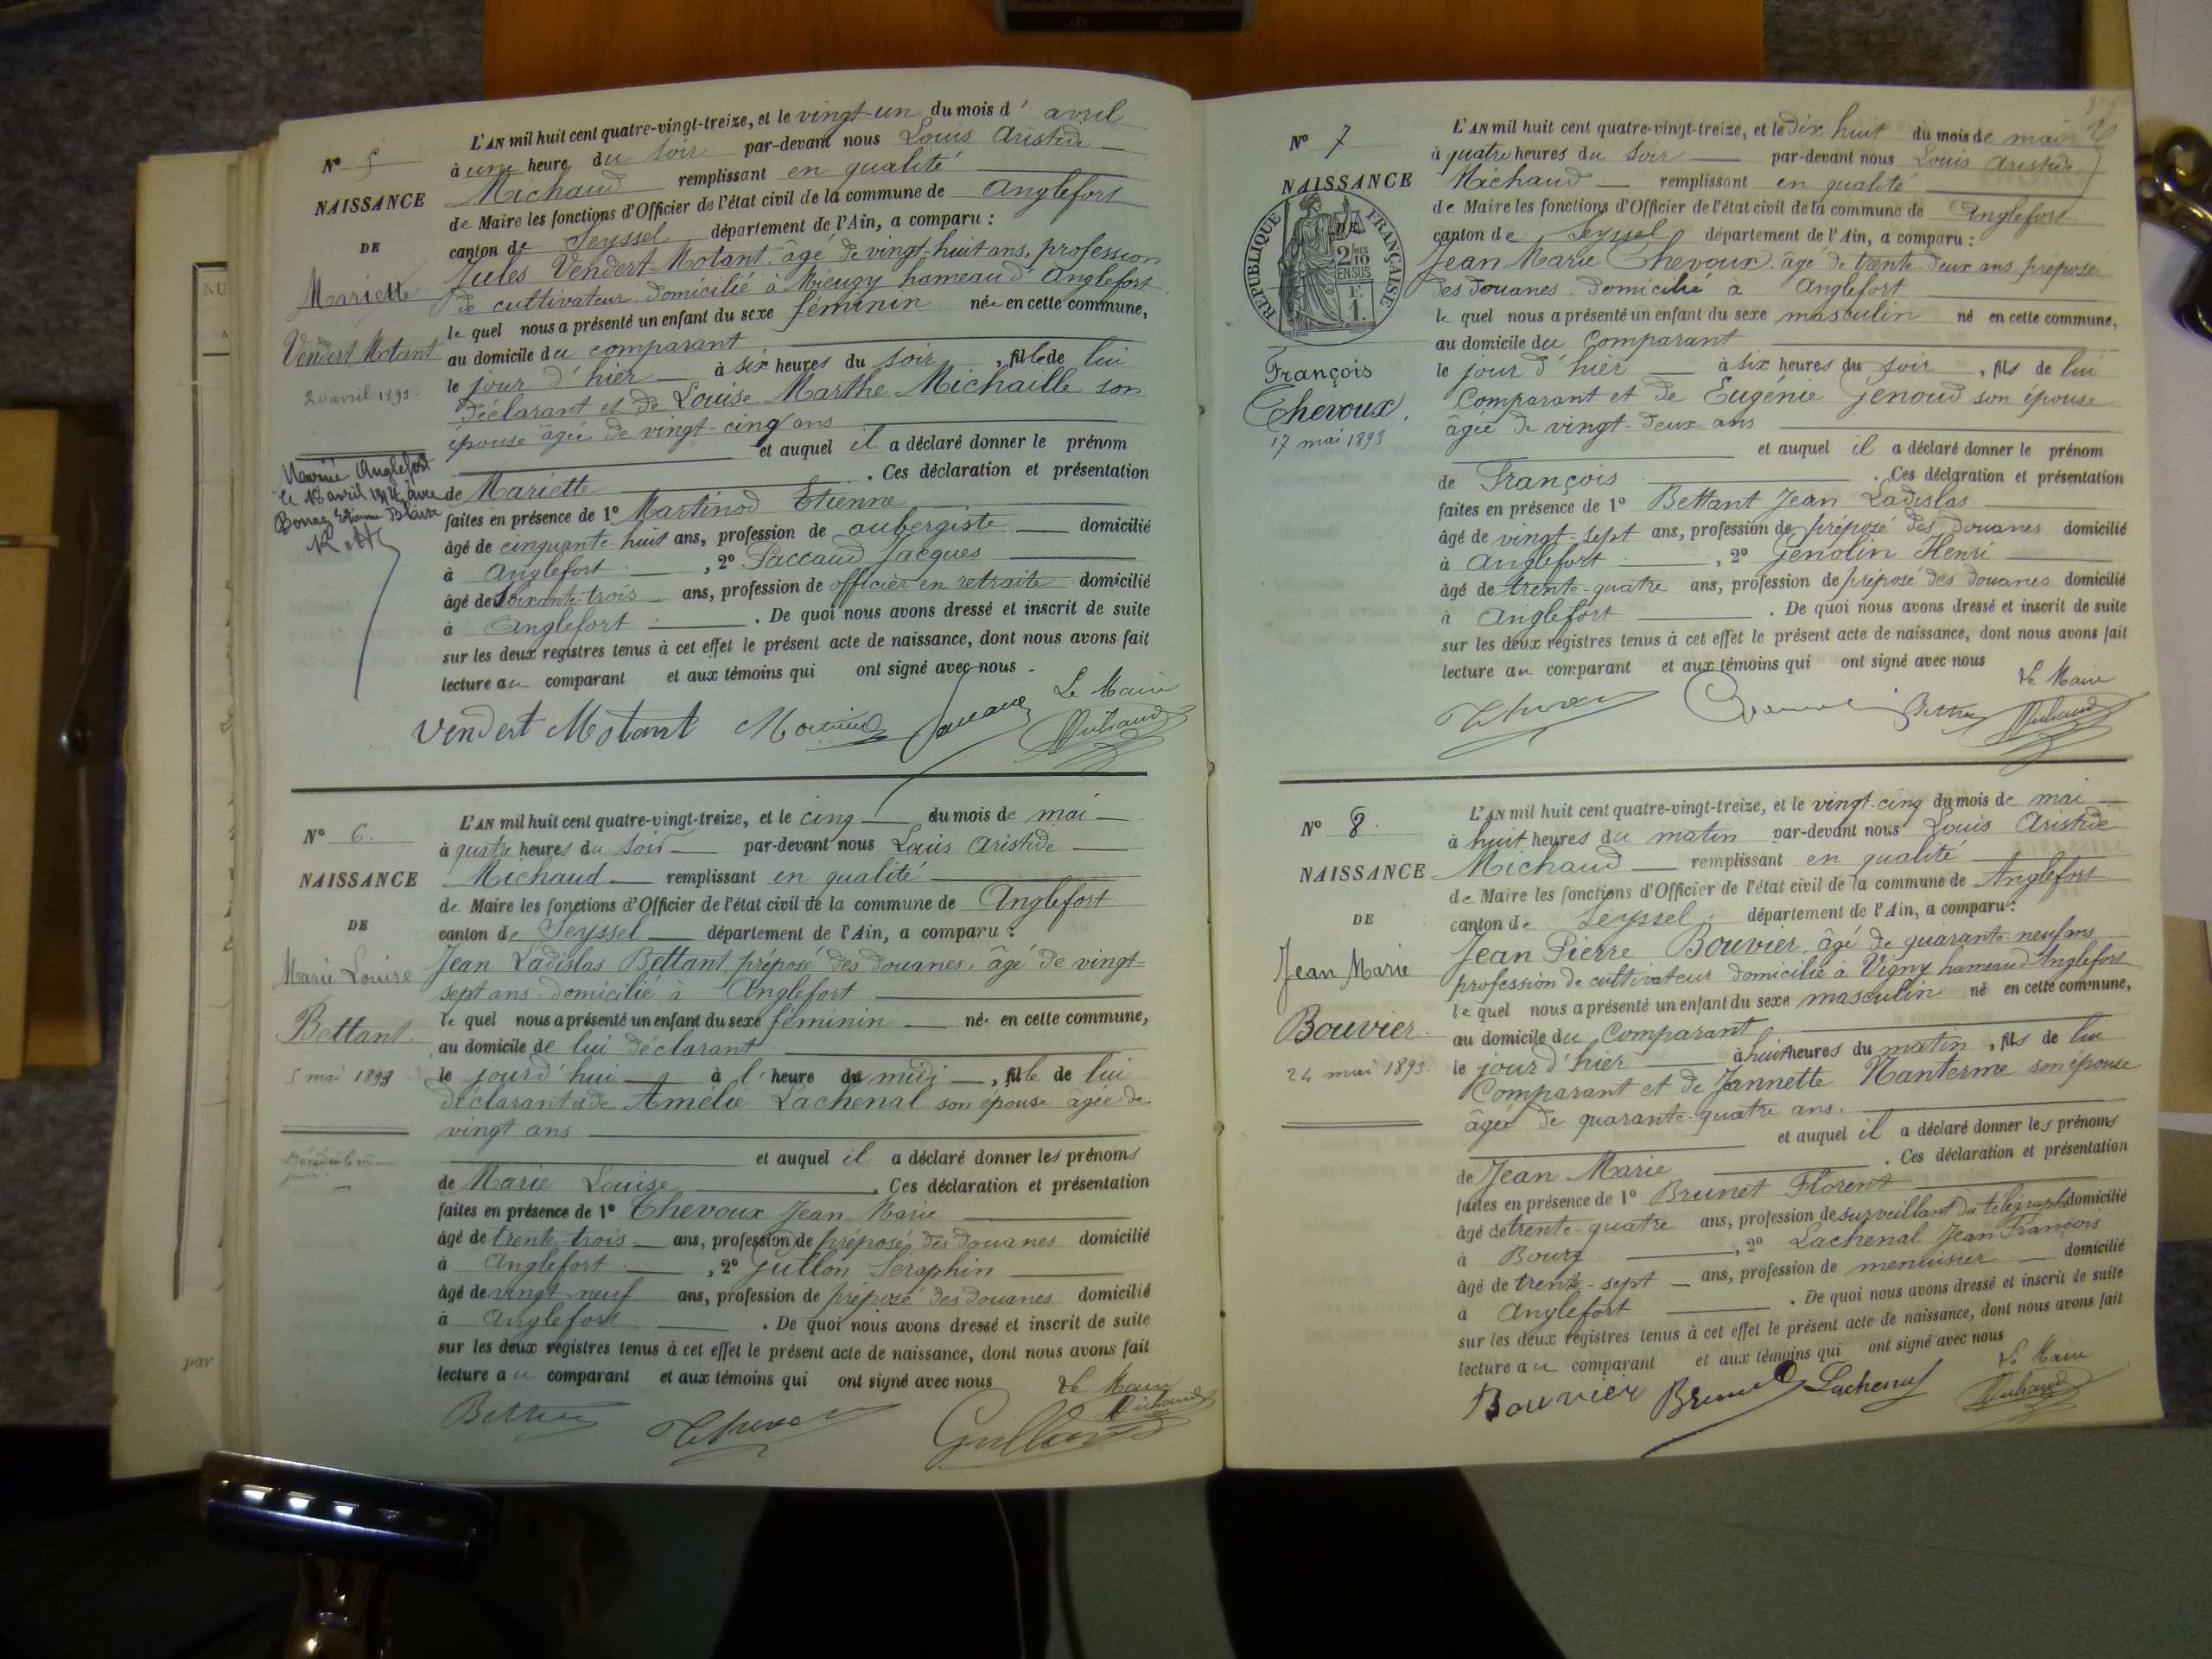 L'AN mil huit cent quatre-vingt-treize, et le vingt-un du mois d' avril
N° 5
à une heure du soir par-devant nous Louis Aristide
NAISSANCE
Michaud remplissant en qualité
de Maire les fonctions d'Officier de l'état civil de la commune de Anglefort
DE
canton de Seyssel département de l'Ain, a comparu :
Jules Vendert-Motant, âgé de vingt-huit ans, profession
Mariette
de cultivateur domicilié à Mieugy hameau d'Anglefort
le quel nous a présenté un enfant du sexe féminin née en cette commune,
Vendert Motant
au domicile du comparant
20 avril 1893
le jour d'hier à six heures du soir, fille de lui
déclarant et de Louise Marthe Michaille son
épouse âgée de vingt-cinq ans
et auquel il a déclaré donner le prénom
Marié Anglefort
le 18 avril 1914 avec
Bonaz Etienne Blaise
de Mariette. Ces déclaration et présentation
faites en présence de 1° Martinod Etienne
âgé de cinquante-huit ans, profession de aubergiste domicilié
à Anglefort, 2° Paccaud Jacques
âgé de soixante-trois ans, profession de officier en retraite domicilié
à Anglefort. De quoi nous avons dressé et inscrit de suite
sur les deux registres tenus à cet effet le présent acte de naissance, dont nous avons fait
lecture au comparant et aux témoins qui ont signé avec nous
Le Maire
Vendert Motant
Michaud
L'AN mil huit cent quatre-vingt-treize, et le cinq du mois de mai
N° 6.
à quatre heures du soir par-devant nous Louis Aristide
NAISSANCE
Michaud remplissant en qualité
de Maire les fonctions d'Officier de l'état civil de la commune de Anglefort
DE
canton de Seyssel département de l'Ain, a comparu :
Marie Louise
Jean Ladislas Bettant, préposé des douanes, âgé de vingt-
sept ans domicilié à Anglefort
Bettant
le quel nous a présenté un enfant du sexe féminin née en cette commune,
au domicile de lui déclarant
5 mai 1893
le jourd'hui à l'heure de midi, fille de lui
déclarant et de Amélie Lachenal son épouse âgée de
vingt ans
Décédée le même
jour.
et auquel il a déclaré donner les prénoms
de Marie Louise. Ces déclaration et présentation
faites en présence de 1° Chevoux Jean Marie
âgé de trente-trois ans, profession de préposé des douanes domicilié
à Anglefort, 2° Jullon Séraphin
âgé de vingt-neuf ans, profession de préposé des douanes domicilié
à Anglefort. De quoi nous avons dressé et inscrit de suite
sur les deux registres tenus à cet effet le présent acte de naissance, dont nous avons fait
lecture au comparant et aux témoins qui ont signé avec nous
Le Maire
Michaud
par
L'AN mil huit cent quatre-vingt-treize, et le dix huit du mois de mai
N° 7
à quatre heures du soir par-devant nous Louis Aristide
NAISSANCE
Michaud remplissant en qualité
de Maire les fonctions d'Officier de l'état civil de la commune de Anglefort
RÉPUBLIQUE FRANÇAISE
2/10 EN SUS
canton de Seyssel département de l'Ain, a comparu :
Jean Marie Chevoux, âgé de trente-deux ans, préposé
des douanes, domicilié à Anglefort
le quel nous a présenté un enfant du sexe masculin né en cette commune,
au domicile du comparant
François
Chevoux.
17 mai 1893
le jour d'hier à six heures du soir, fils de lui
comparant et de Eugénie Genoud son épouse
âgée de vingt-deux ans
et auquel il a déclaré donner le prénom
de François. Ces déclaration et présentation
faites en présence de 1° Bettant Jean Ladislas
âgé de vingt-sept ans, profession de préposé des douanes domicilié
à Anglefort, 2° Genolin Henri
âgé de trente-quatre ans, profession de préposé des douanes domicilié
à Anglefort. De quoi nous avons dressé et inscrit de suite
sur les deux registres tenus à cet effet le présent acte de naissance, dont nous avons fait
lecture au comparant et aux témoins qui ont signé avec nous
Le Maire
Michaud
L'AN mil huit cent quatre-vingt-treize, et le vingt-cinq du mois de mai
N° 8.
à huit heures du matin par-devant nous Louis Aristide
NAISSANCE
Michaud remplissant en qualité
de Maire les fonctions d'Officier de l'état civil de la commune de Anglefort
DE
canton de Seyssel, département de l'Ain, a comparu :
Jean Pierre Bouvier, âgé de quarante-neuf ans
Jean Marie
profession de cultivateur domicilié à Vigny hameau d'Anglefort
le quel nous a présenté un enfant du sexe masculin né en cette commune,
Bouvier.
au domicile du comparant
24 mai 1893.
le jour d'hier à huit heures du matin, fils de lui
comparant et de Jannette Nanterme son épouse
âgée de quarante-quatre ans.
et auquel il a déclaré donner les prénoms
de Jean Marie. Ces déclaration et présentation
faites en présence de 1° Brunet Florent
âgé de trente-quatre ans, profession de surveillant du télégraphe domicilié
à Bourg, 2° Lachenal Jean François
âgé de trente-sept ans, profession de menuisier domicilié
à Anglefort. De quoi nous avons dressé et inscrit de suite
sur les deux registres tenus à cet effet le présent acte de naissance, dont nous avons fait
lecture au comparant et aux témoins qui ont signé avec nous
Le Maire
Bouvier Brunet Lachenal Michaud